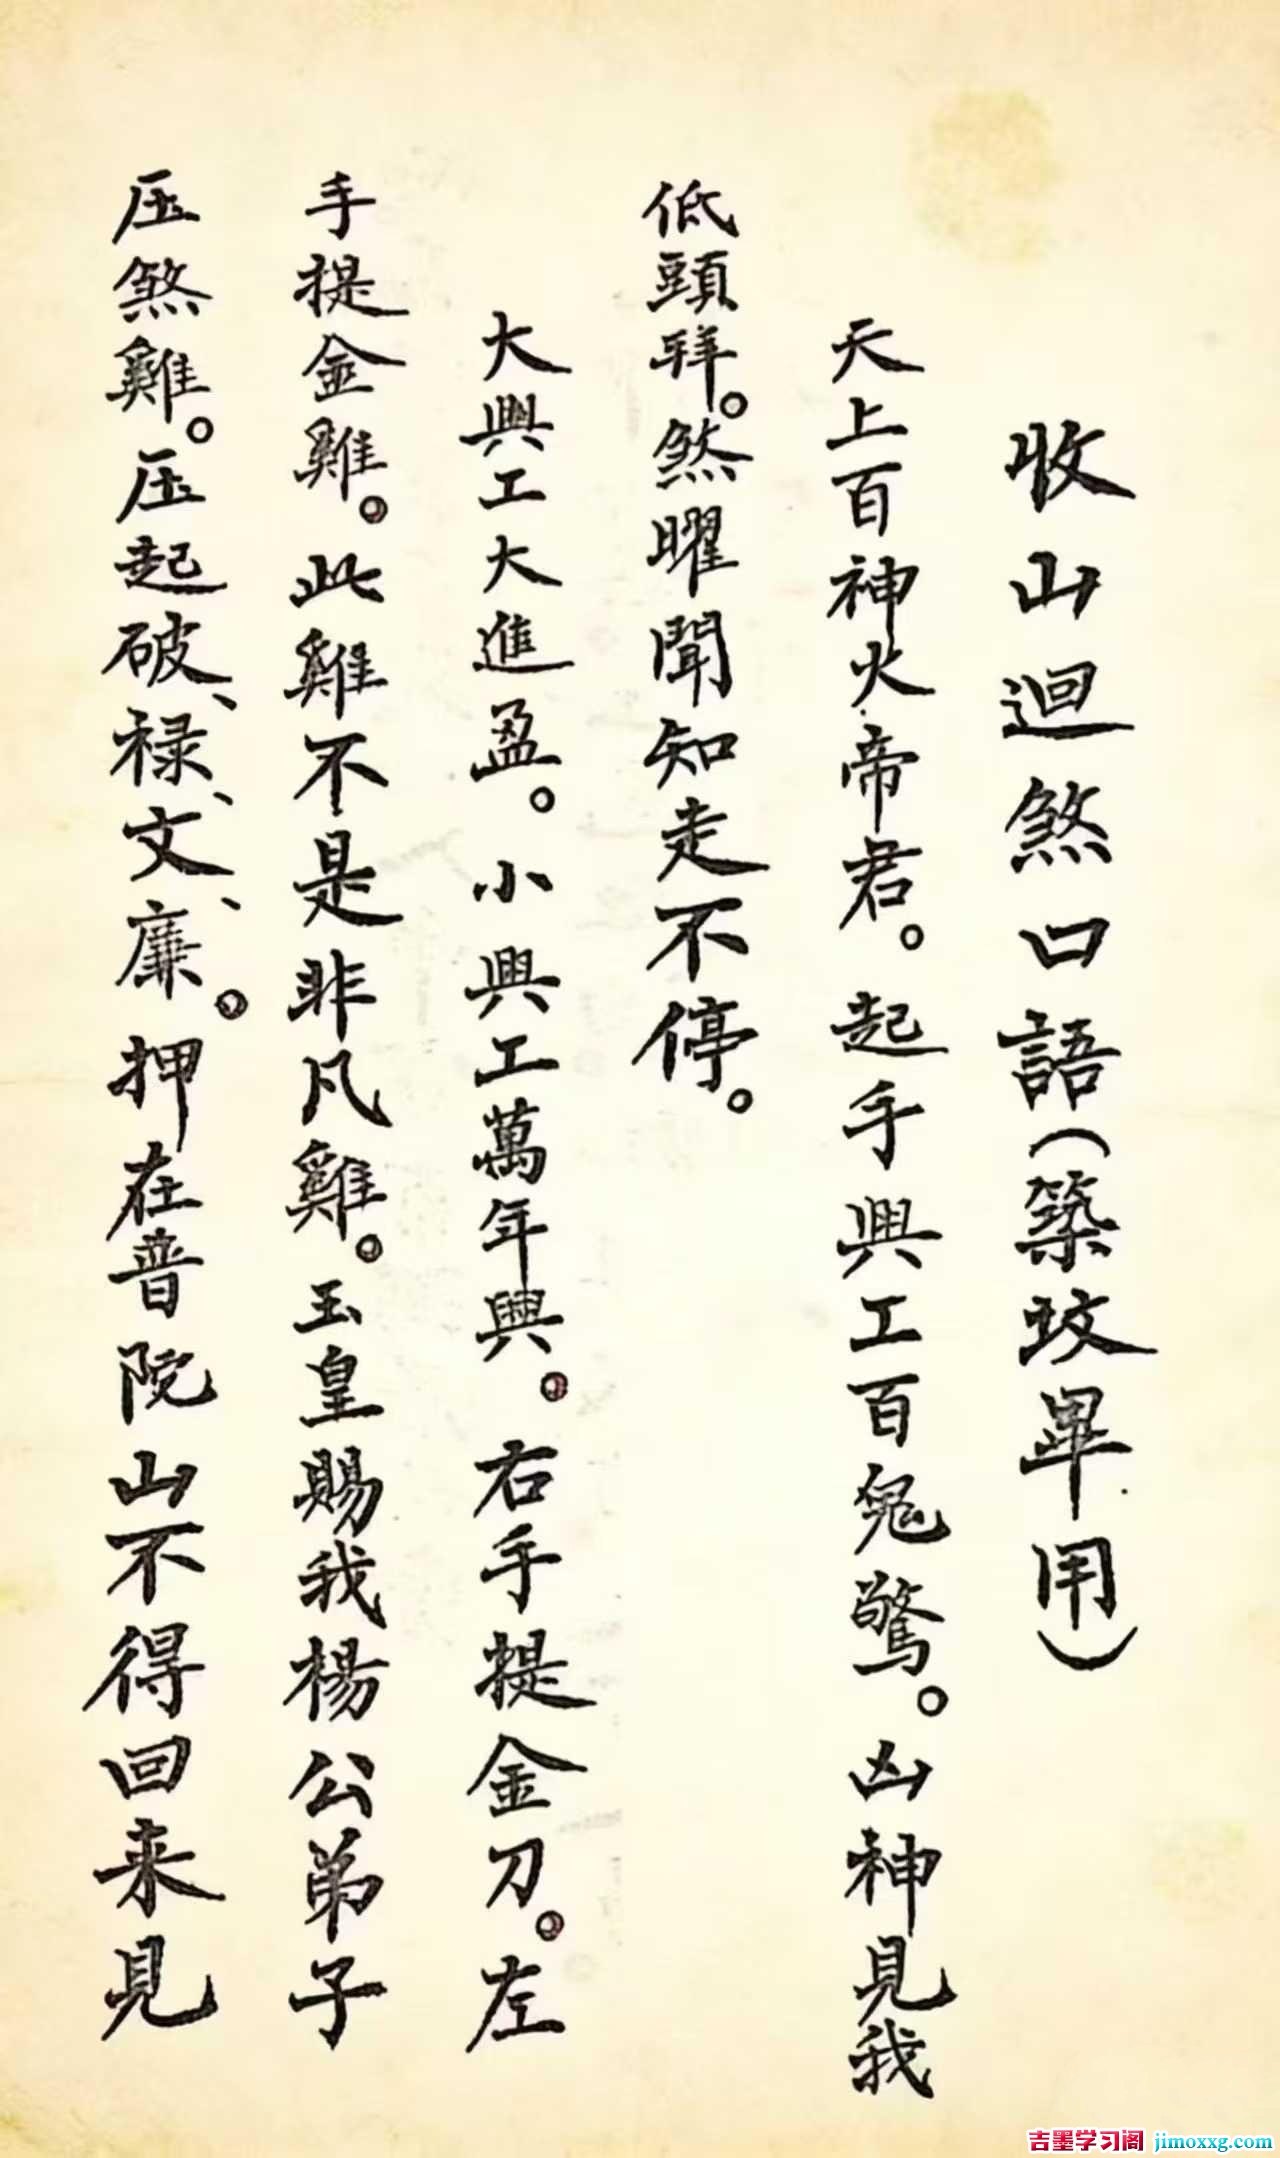 收山迴煞口語(築坟畢用)
天上百神火帝君。起手興工百鬼驚。凶神見我
低頭拜。煞曜聞知走不停。
大興工大進盈。小興工萬年興。右手提金刀。左
手提金雞。此雞不是非凡雞。玉皇賜我楊公弟子
压煞雞。压起破、禄、文、廉。押在普院山不得回来見
吉墨学习阁 jimoxxg.com